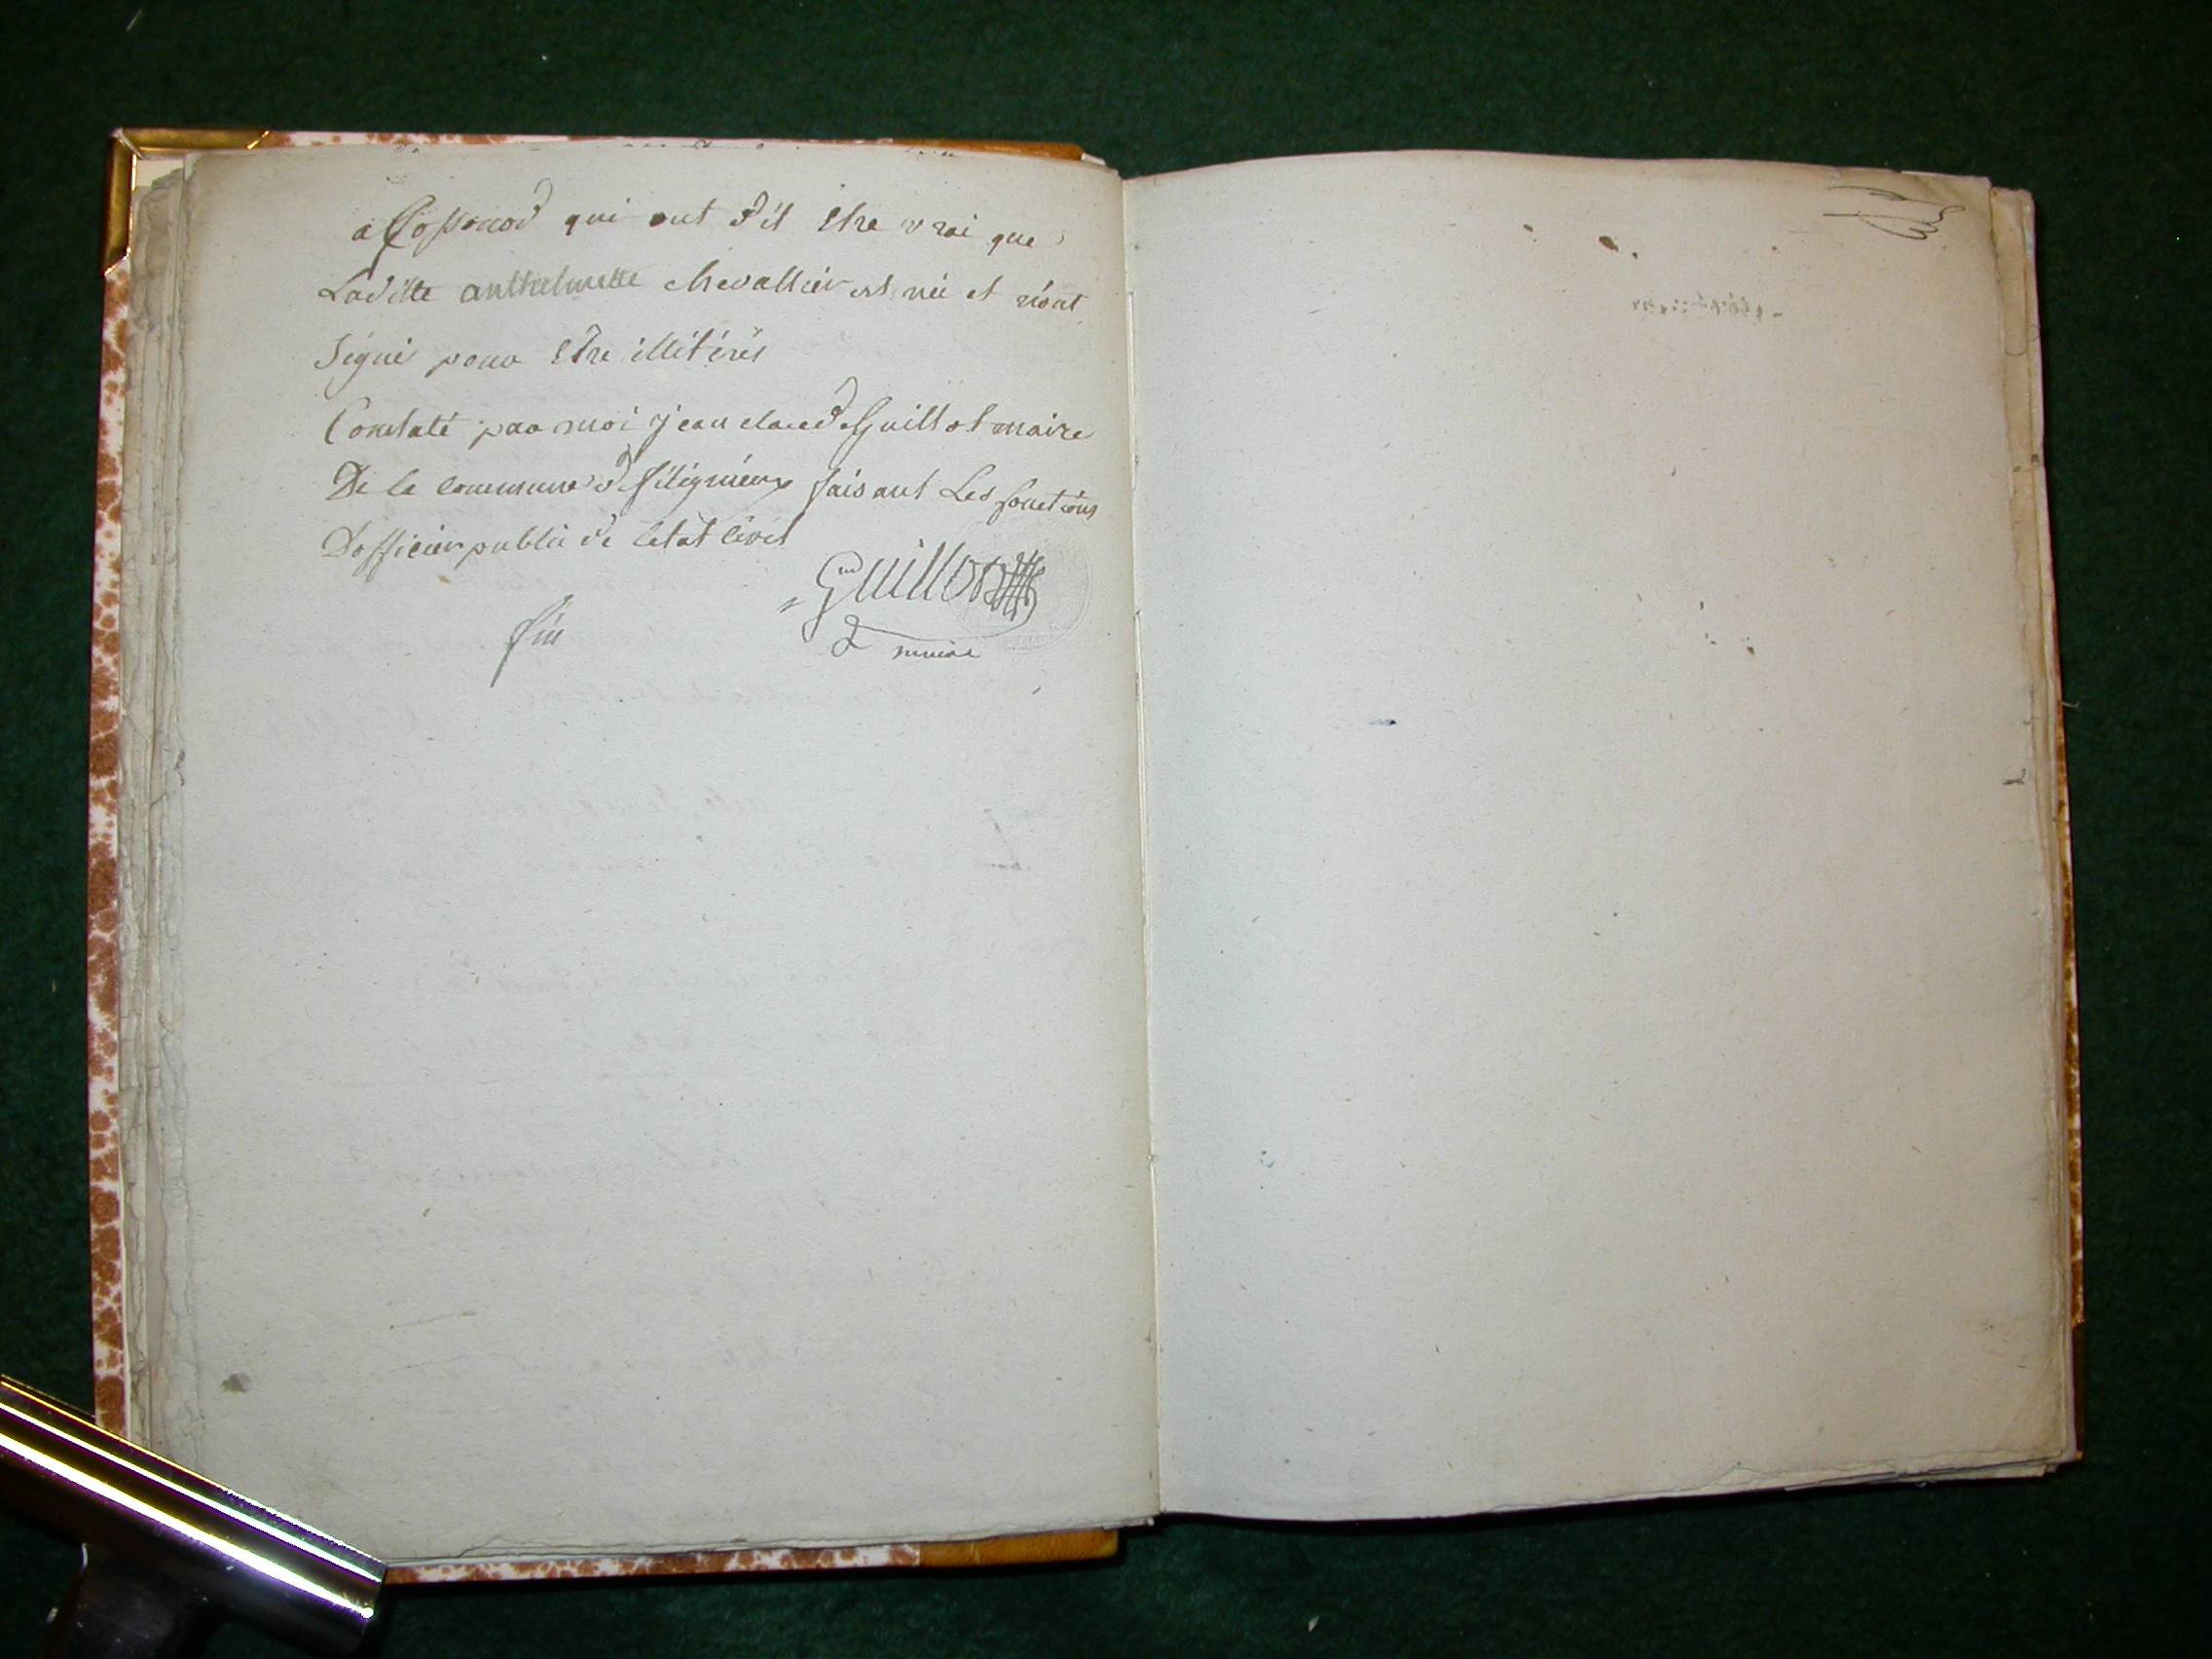 a Cossonod qui ont dit Etre vrai que
Laditte anthelmette chevallier est née et n'ont
signé pour Etre illitérés
Constaté par moi jean claude Guillot maire
De la commune de faisant Les fonctions
D'officier public de letat Civil
Guillot
maire
fin